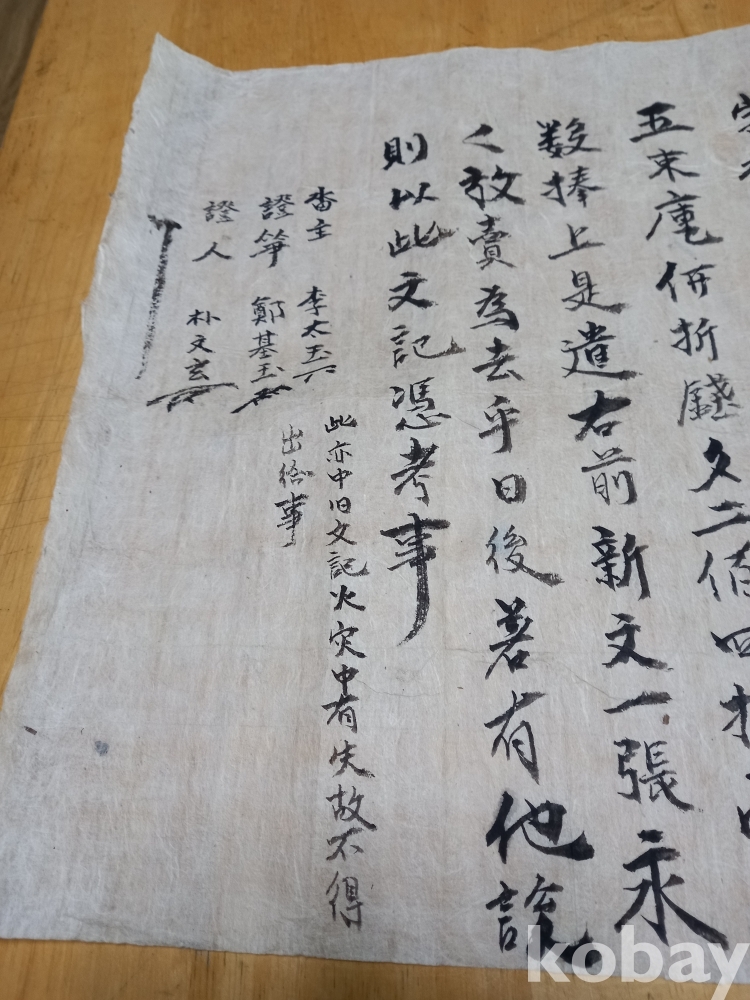 五束庫㐰折錢文二佰四拾
数捧上是遣右前新文一張永
〻放賣為去乎日後若有他談
則以此文記憑考事
畓主 李太玉
此亦中旧文記火灾中有失故不得
出給事
證筆 鄭基玉
證人 朴文玄
kobay